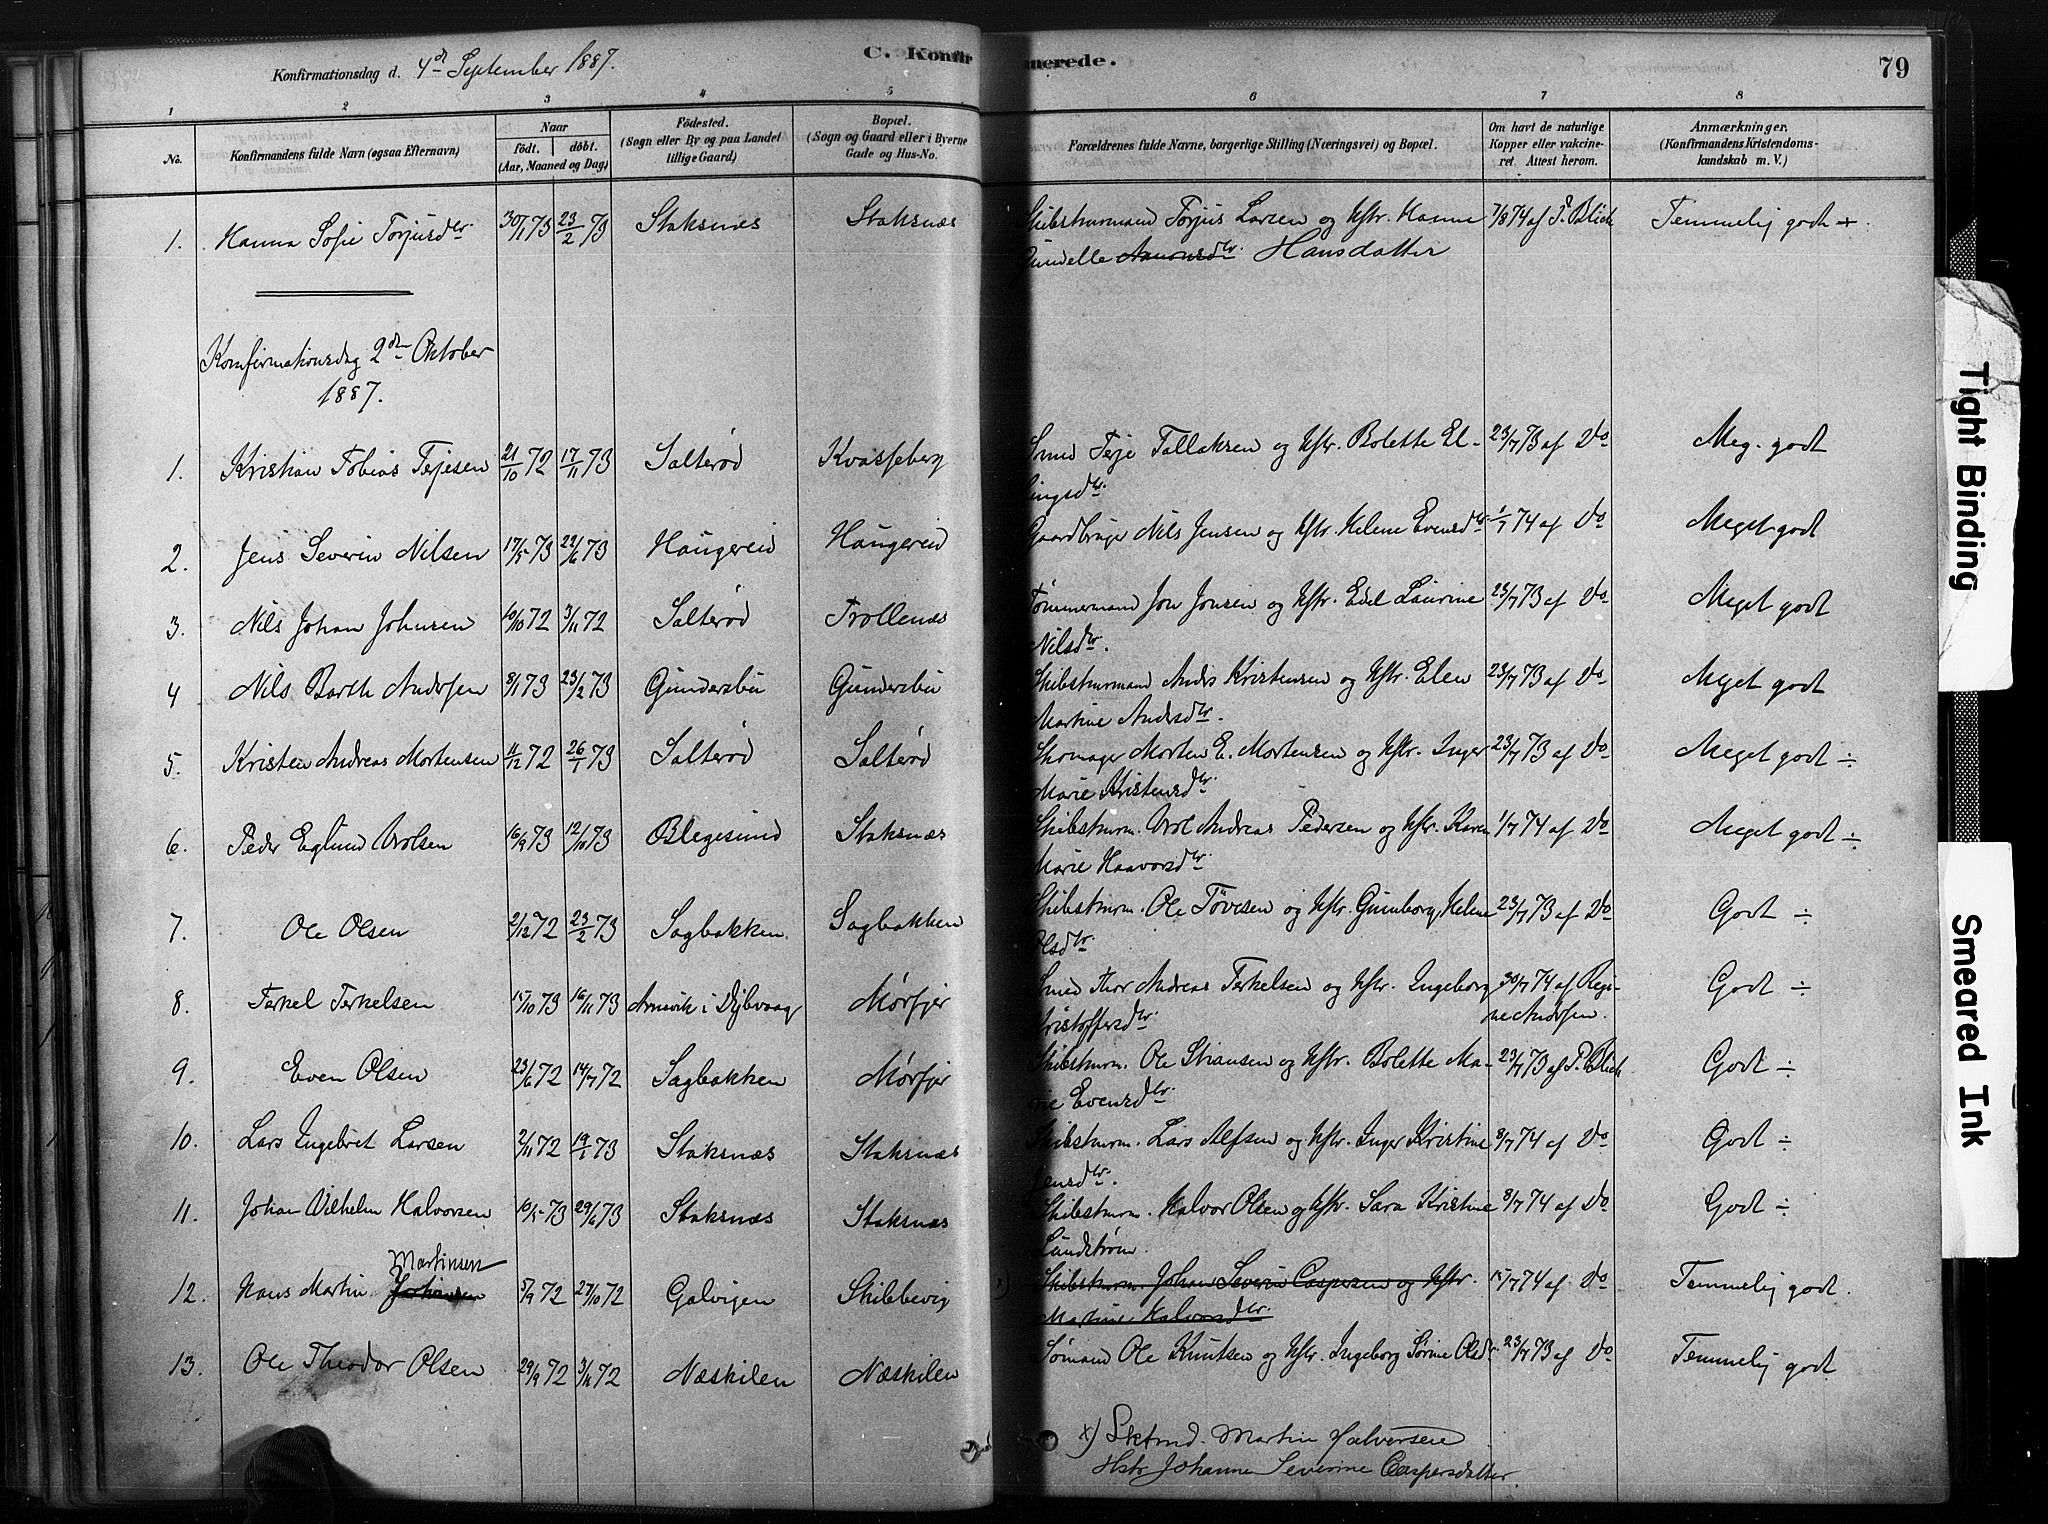 Konfirmationsdag d. 4de September 1887.
C. Konfirmerede.
79
1 2 3 4 5 6 7 8
No.
Konfirmandens fulde Navn (ogsaa Efternavn)
Naar
født. døbt.
(Aar, Maaned og Dag)
Fødested.
(Sogn eller By og paa Landet
tillige Gaard)
Bopæl.
(Sogn og Gaard eller i Byerne
Gade og Hus-No.
Forældrenes fulde Navne, borgerlige Stilling (Næringsvei) og Bopæl.
Om havt de naturlige
Kopper eller vakcine-
ret. Attest herom.
Anmærkninger.
(Konfirmandens Kristendoms-
kundskab m. V.)
1. Hanna Sofie Torjusdtr. 30/1 73 23/2 73 Staksnæs Staksnæs Skibstmrmand Torjus Larsen og Hstr. Hanne 7/8 74 af P. Blich Temmelig godt
Gunelle Aanonsdtr. Hansdatter
Konfirmationsdag 2den Oktober
1887.
1. Kristian Tobias Terjesen 21/10 72 17/11 73 Salterød Kvasseberg Smed Terje Tallaksen og Hstr. Bolette El- 23/7 73 af Do Meg. godt
lingsdtr.
2. Jens Severin Nilsen 17/5 73 22/6 73 Haugereid Haugereid Gaardbruger Nils Jensen og Hstr. Helene Evensdtr. 1/7 74 af Do Meget godt
3. Nils Johan Johnsen 10/10 72 3/11 72 Salterød Trollenæs Tømmermand Jon Jonsen og Hstr. Edel Laurine 23/7 73 af Do Meget godt
Nilsdtr.
4 Nils Barth Andersen 8/1 73 23/2 73 Gundersbu Gundersbu Skibstmrmand Anders Kristensen og Hstr. Elen 23/7 73 af Do Meget godt
Martine Andersdtr.
5. Kristen Andreas Mortensen 11/12 72 26/1 73 Salterød Salterød Skomager Morten E. Mortensen og Hstr. Inger 23/7 73 af Do Meget godt ÷
Marie Kristensdtr.
6. Peder Eglund Arolsen 16/9 73 12/10 73 Blegesund Staksnæs Skibstmrm. Arol Andreas Pedersen og Hstr. Karen 1/7 74 af Do Meget godt ÷
Marie Haavorsdtr.
7. Ole Olsen 2/12 72 23/2 73 Sagbakken Sagbakken Skibstmrm. Ole Tøvesen og Hstr. Gunborg Helene 23/7 73 af Do Godt ÷
Olsdtr.
8. Terkel Terkelsen 15/10 73 16/11 73 Arnevik i Dybvaag Mørfjer Smed Thor Andreas Terkelsen og Hstr. Ingeborg 30/7 74 af Regi- Godt ÷
Kristoffersdtr. ne Andersen.
9. Even Olsen 23/6 72 14/7 72 Sagbakken Mørfjer Skibstmrm. Ole Stiansen og Hstr. Bolette Ma- 23/7 73 af P. Blich Godt ÷
rie Evensdtr.
10. Lars Ingebret Larsen 2/11 72 19/1 73 Staksnæs Staksnæs Skibstmrm. Lars Alfsen og Hstr. Inger Kristine 8/7 74 af Do Godt ÷
Jensdtr.
11. Johan Vilhelm Halvorsen 10/5 73 29/6 73 Staksnæs Staksnæs Skibstmrm. Halvor Olsen og Hstr. Sara Kristine 8/7 74 af Do Godt ÷
Lundstrøm.
Martinsen
12. Hans Martin Johansen 5/9 72 27/10 72 Galvigen Skibbevig x) Skibstmrm. Johan Severin Caspersen og Hstr. 15/7 74 af Do Temmelig godt.
Martine Halvorsdtr.
13. Ole Theodor Olsen 29/9 72 3/11 72 Næskilen Næskilen Sømand Ole Knutsen og Hstr. Ingeborg Sørine Olsdtr. 23/7 73 af Do Temmelig godt
x) Sktmd. Martin Halvorsen
Hstr Johanne Severine Caspersdatter
Tight Binding
Smeared Ink